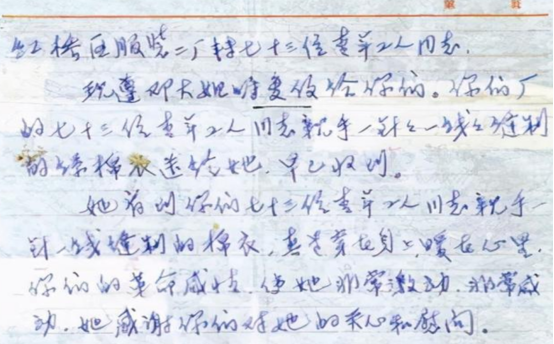 第 頁
红桥区服装二厂转七十三位青年工人同志.
现遵邓大姐嘱复信给你们。你们厂
的七十三位青年工人同志亲手一针一线缝制
的绿棉衣送给她.早已收到。
她看到你们七十三位青年工人同志亲手一
针一线缝制的棉衣,真是穿在身上,暖在心里.
你们的革命感情,使她非常激动.非常感
动.她感谢你们对她的关心和慰问。